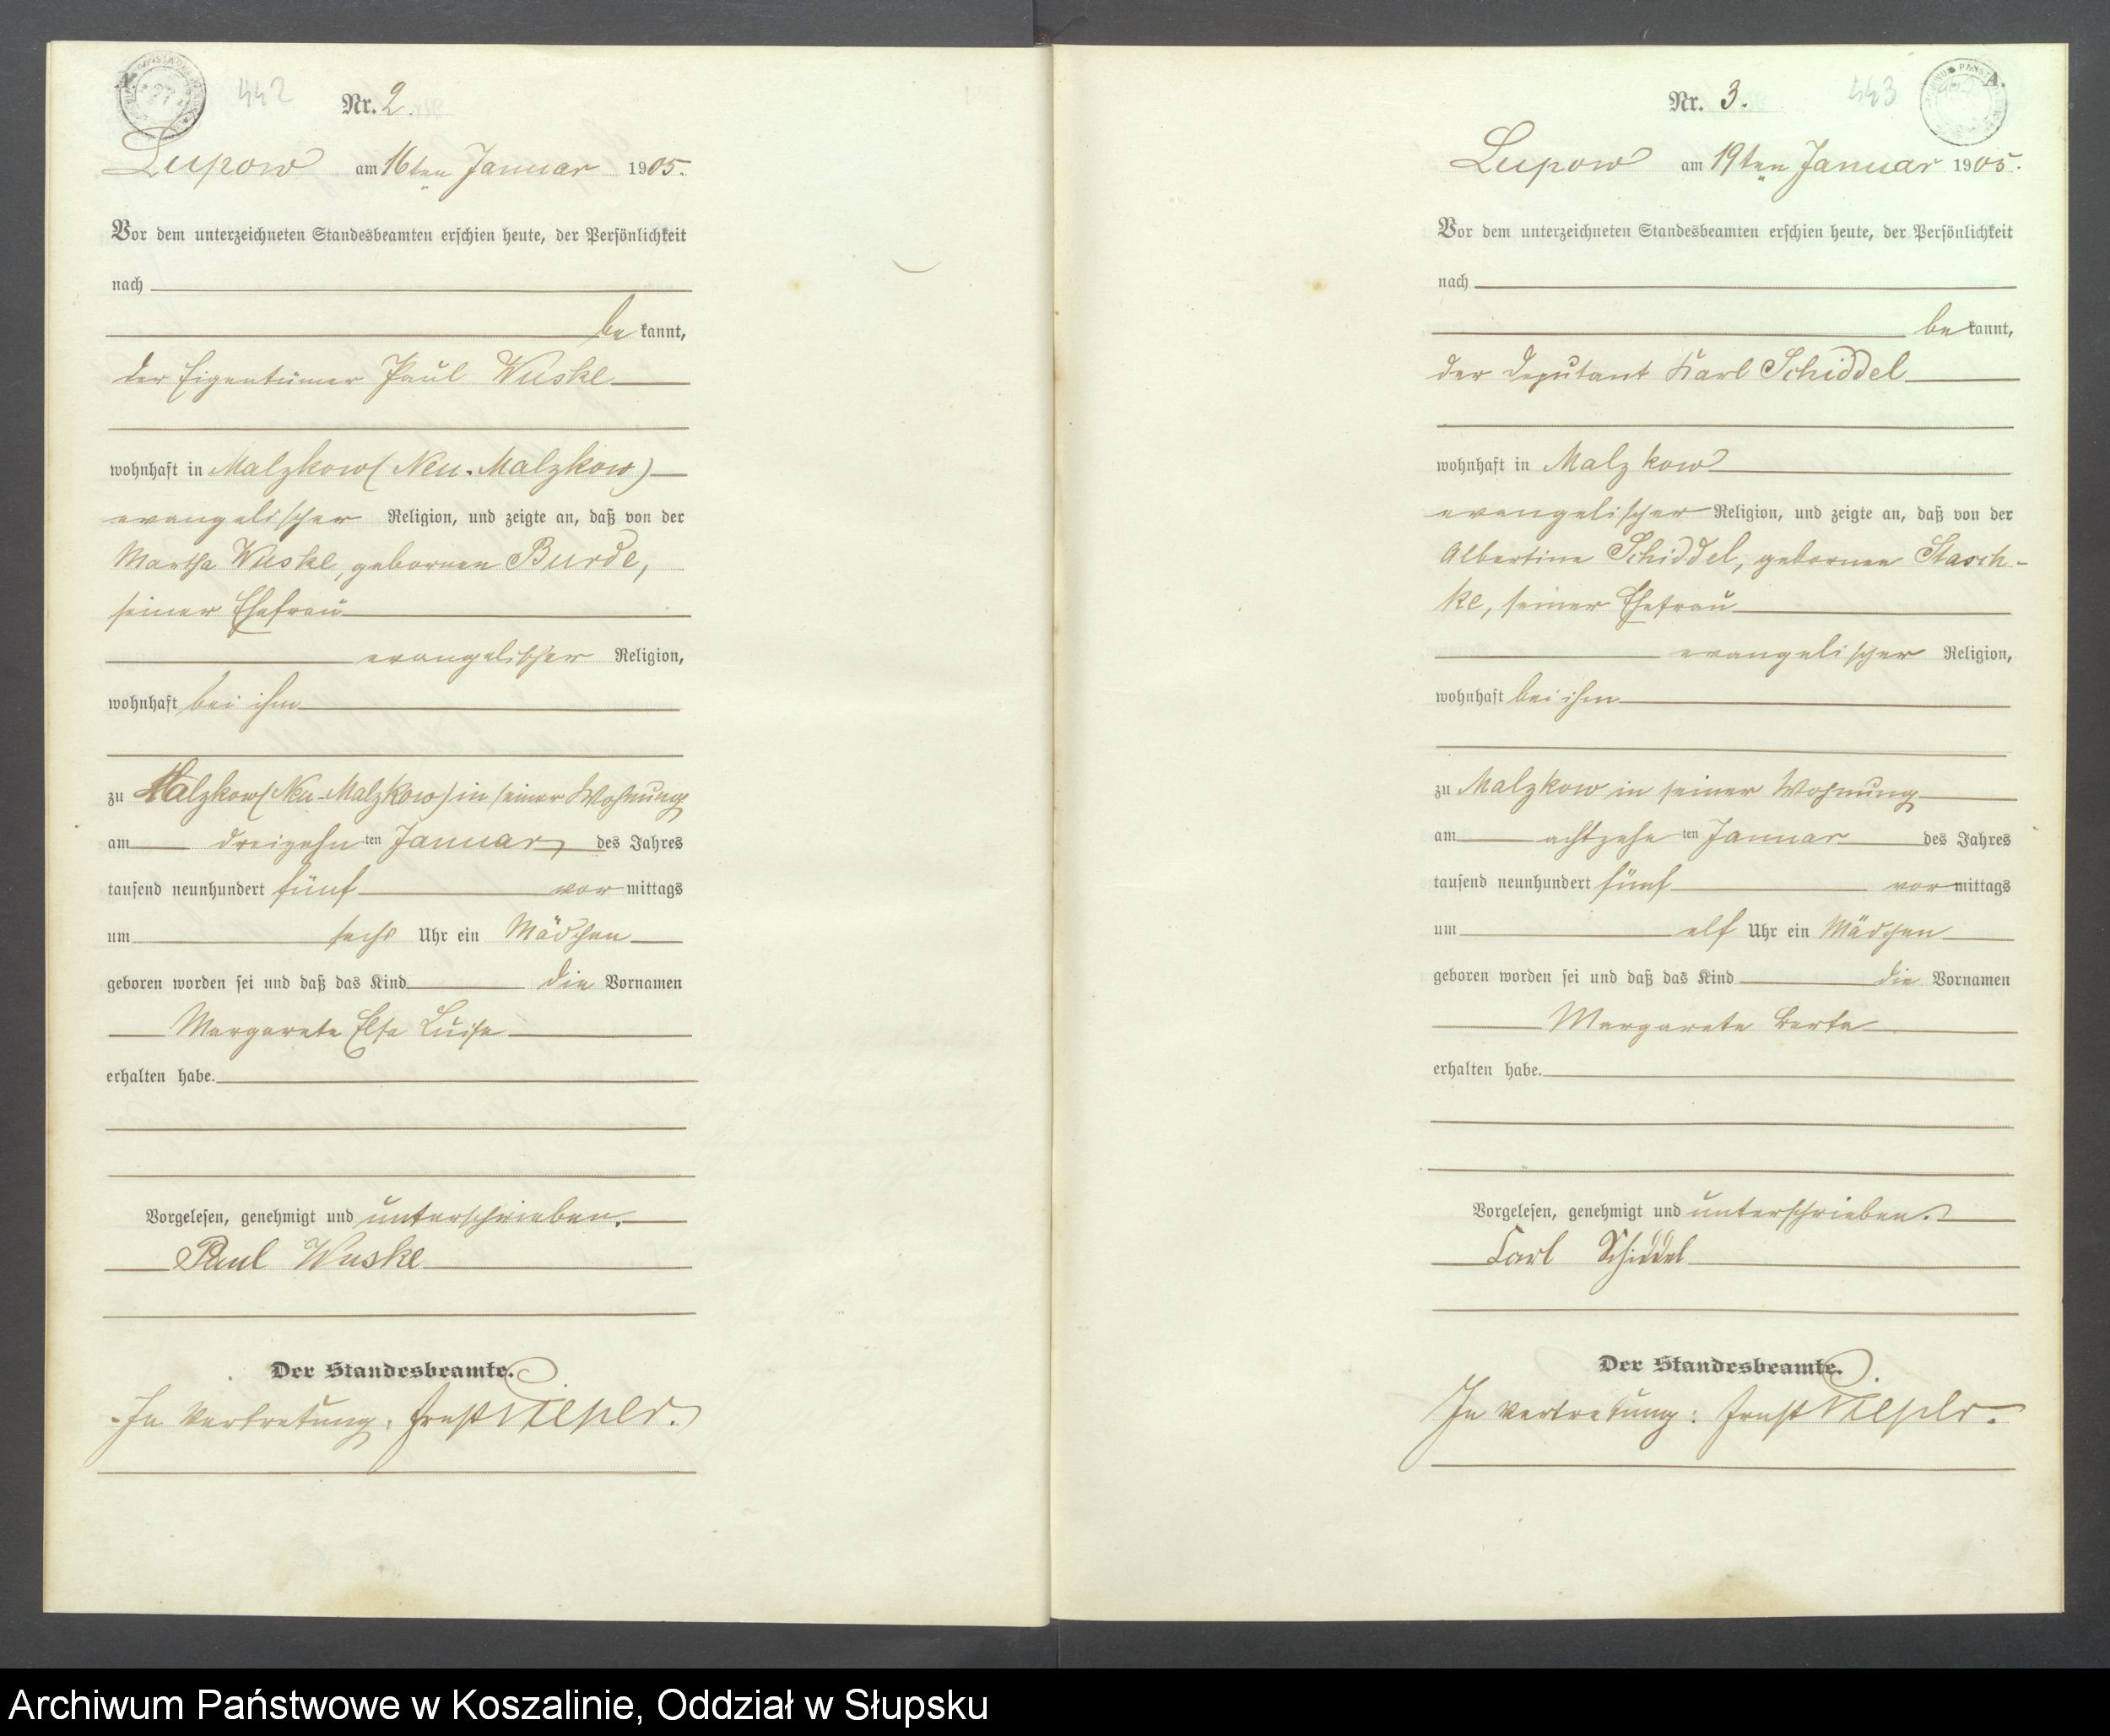 442
Nr. 2.
Lupow am 16ten Januar 1905.
Vor dem unterzeichneten Standesbeamten erschien heute, der Persönlichkeit
nach
be kannt,
der Eigentümer Paul Wuske
wohnhaft in Malzkow (Neu-Malzkow)
evangelischer Religion, und zeigte an, daß von der
Martha Wuske, gebornen Burde,
seiner Ehefrau
evangelischer Religion,
wohnhaft bei ihm
zu Malzkow (Neu-Malzkow) in seiner Wohnung
am dreizehn ten Januar des Jahres
tausend neunhundert fünf vor mittags
um sechs Uhr ein Mädchen
geboren worden sei und daß das Kind die Vornamen
Margarete Else Luise
erhalten habe.
Vorgelesen, genehmigt und unterschrieben.
Paul Wuske
Der Standesbeamte.
In Vertretung: Ernst Pieper.
443
Nr. 3.
Lupow am 19ten Januar 1905.
Vor dem unterzeichneten Standesbeamten erschien heute, der Persönlichkeit
nach
be kannt,
der Deputant Karl Schiddel
wohnhaft in Malzkow
evangelischer Religion, und zeigte an, daß von der
Albertine Schiddel, gebornen Stasch-
ke, seiner Ehefrau
evangelischer Religion,
wohnhaft bei ihm
zu Malzkow in seiner Wohnung
am achtzehn ten Januar des Jahres
tausend neunhundert fünf vor mittags
um elf Uhr ein Mädchen
geboren worden sei und daß das Kind die Vornamen
Margarete Berta
erhalten habe.
Vorgelesen, genehmigt und unterschrieben.
Carl Schiddel
Der Standesbeamte.
In Vertretung: Ernst Pieper.
Archiwum Państwowe w Koszalinie, Oddział w Słupsku